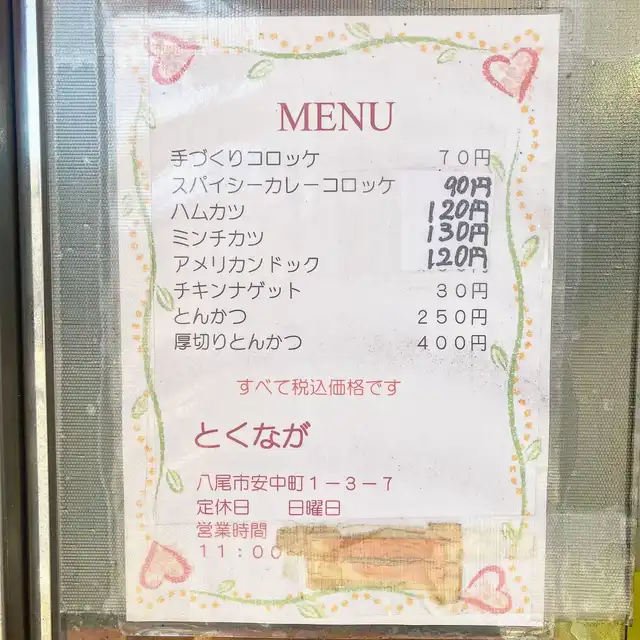 MENU
手づくりコロッケ　７０円
スパイシーカレーコロッケ　90円
ハムカツ　120円
ミンチカツ　130円
アメリカンドック　120円
チキンナゲット　３０円
とんかつ　２５０円
厚切りとんかつ　４００円
すべて税込価格です
とくなが
八尾市安中町１－３－７
定休日　日曜日
営業時間
１１：００